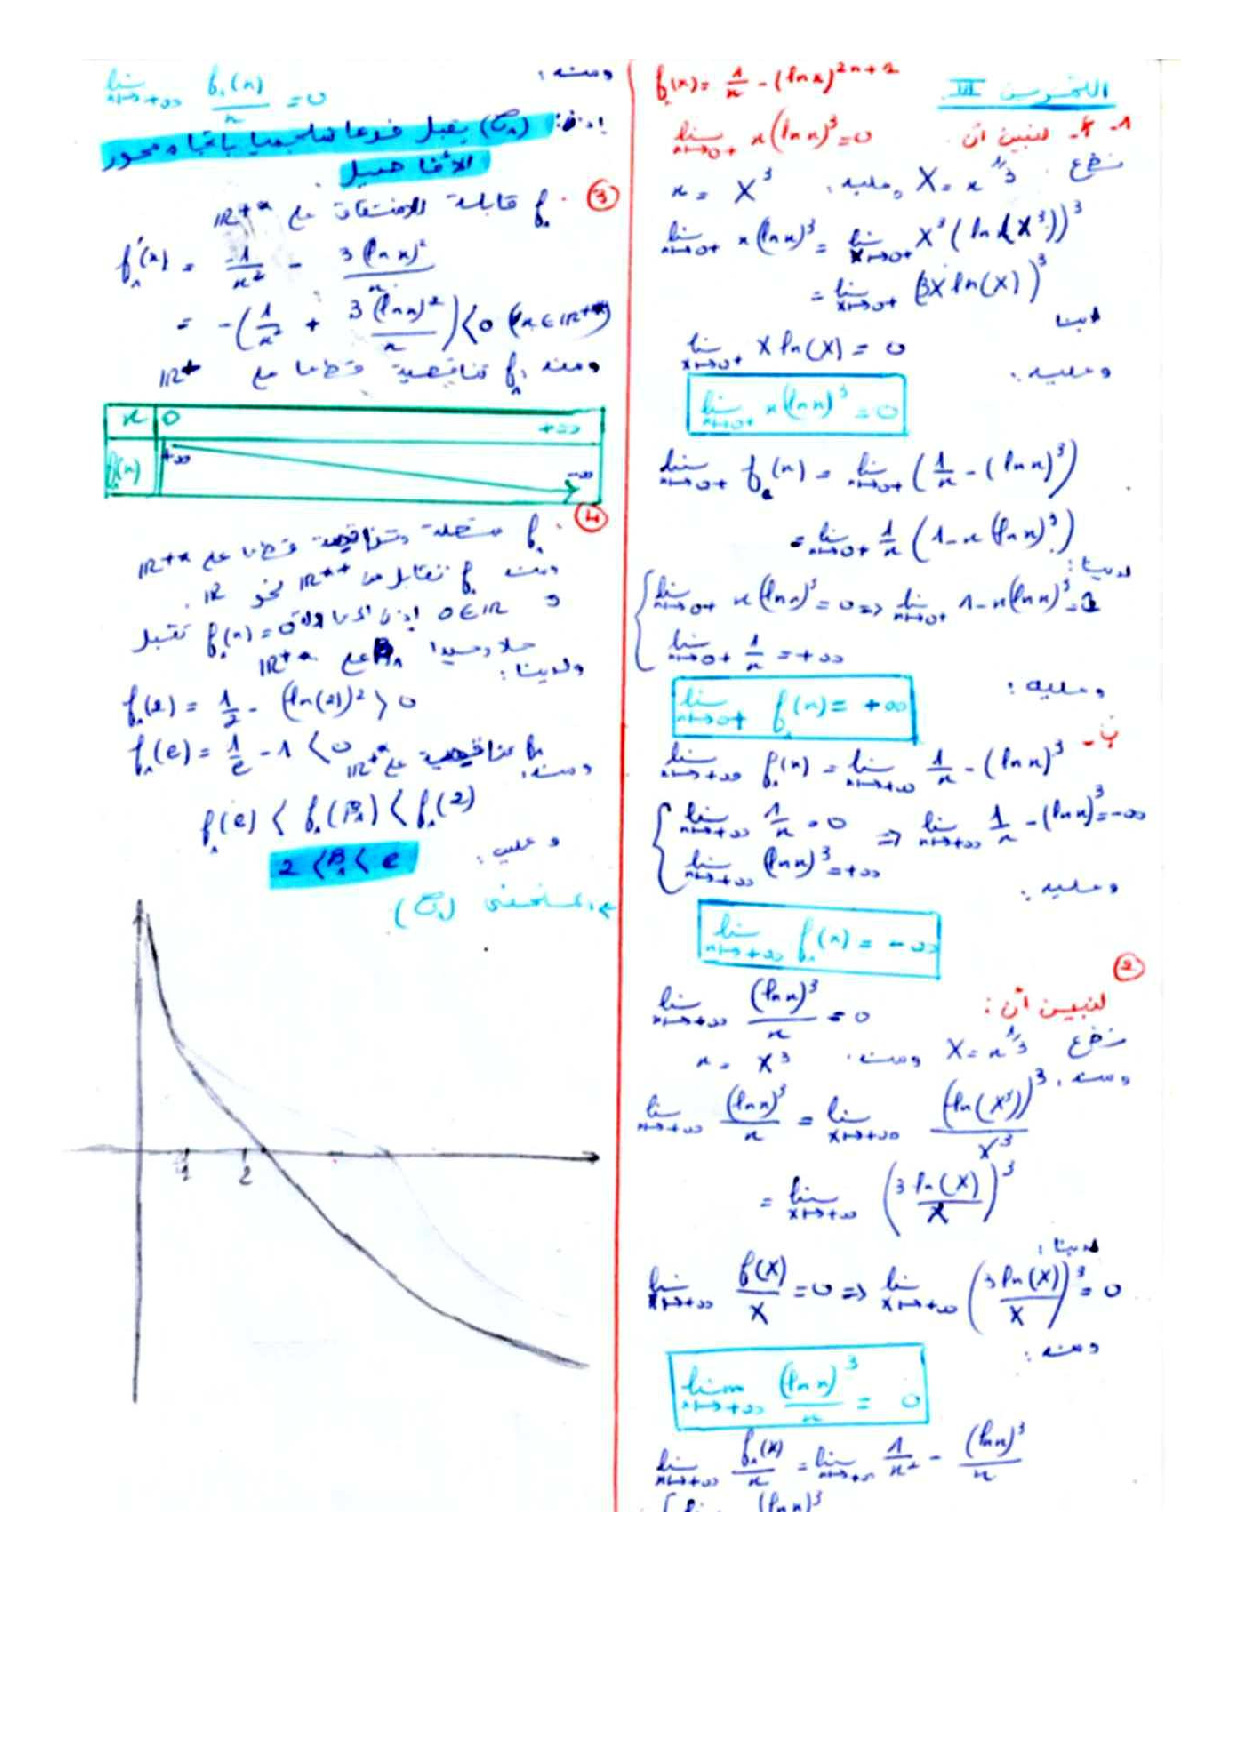 التمرين III
f(x) = 1/x - (ln x)^{2n+1}
1- أ- لنبين أن lim_{x→0+} x(ln x)^3 = 0
نضع X = x^{1/3} وعليه: x = X^3
lim_{x→0+} x(ln x)^3 = lim_{X→0+} X^3(ln(X^3))^3
= lim_{X→0+} (3X ln(X))^3
لدينا
lim_{X→0+} X ln(X) = 0
وعليه:
lim_{x→0+} x(ln x)^3 = 0
lim_{x→0+} f_1(x) = lim_{x→0+} (1/x - (ln x)^3)
= lim_{x→0+} 1/x (1 - x(ln x)^3)
لدينا:
lim_{x→0+} x(ln x)^3 = 0 ⇒ lim_{x→0+} 1 - x(ln x)^3 = 1
lim_{x→0+} 1/x = +∞
وعليه:
lim_{x→0+} f_1(x) = +∞
ب- lim_{x→+∞} f_1(x) = lim_{x→+∞} 1/x - (ln x)^3
lim_{x→+∞} 1/x = 0 ⇒ lim_{x→+∞} 1/x - (ln x)^3 = -∞
lim_{x→+∞} (ln x)^3 = +∞
وعليه:
lim_{x→+∞} f_1(x) = -∞
②
لنبين أن:
lim_{x→+∞} (ln x)^3/x = 0
نضع X = x^{1/3} ومنه: x = X^3
ومنه:
lim_{x→+∞} (ln x)^3/x = lim_{X→+∞} (ln(X^3))^3/X^3
= lim_{X→+∞} (3 ln(X)/X)^3
لدينا:
lim_{X→+∞} f(X)/X = 0 ⇒ lim_{X→+∞} (3 ln(X)/X)^3 = 0
ومنه:
lim_{x→+∞} (ln x)^3/x = 0
lim_{x→+∞} f_1(x)/x = lim_{x→+∞} 1/x^2 - (ln x)^3/x
ومنه:
lim_{x→+∞} f_1(x)/x = 0
إذن: (C_1) يقبل فرعا شلجميا باتجاه محور
الأفاصيل
③ - f_1 قابلة للاشتقاق على IR^{+*}
f_1'(x) = 1/x^2 - 3(ln x)^2/x
= -(1/x^2 + 3(ln x)^2/x) < 0 (x ∈ IR^{+*})
ومنه f_1 تناقصية قطعا على IR^+
x 0 +∞
f_1(x) +∞ -∞
④ - f_1 متصلة وتناقصية قطعا على IR^{+*}
ومنه f_1 تقابل من IR^{+*} نحو IR.
و 0 ∈ IR إذن المعادلة f_1(x) = 0 تقبل
حلا وحيدا β_1 على IR^{+*}
ولدينا:
f_1(2) = 1/2 - (ln(2))^2 > 0
f_1(e) = 1/e - 1 < 0
f_1 تناقصية على IR^{+*}
ومنه:
f_1(e) < f_1(β_1) < f_1(2)
وعليه:
2 < β_1 < e
المنحنى (C_1)
1 2